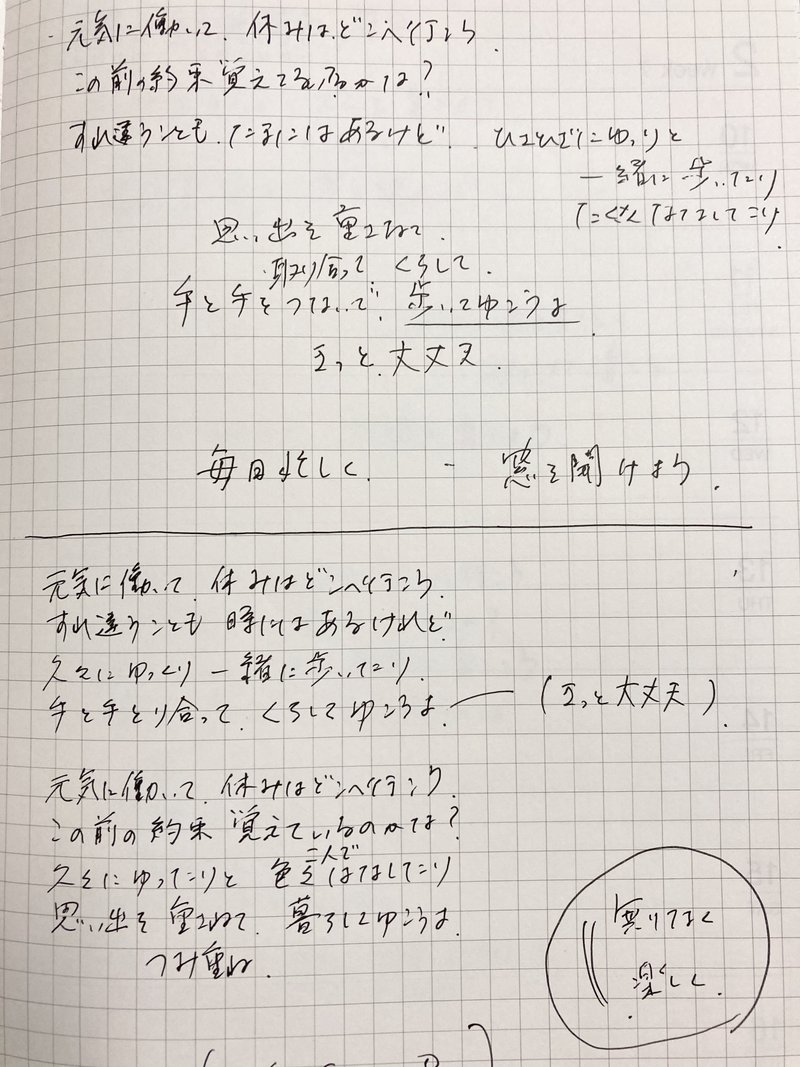 元気に働いて、休みはどこへ行こう
この前の約束覚えてるかな?
すれ違うことも、たまにはあるけど、
ひさびさにゆっくりと
一緒に歩いたり
たくさんはなしてしたり
思い出を重ねて、
取り合って、くらして、
手と手をつないで、歩いてゆこうよ
きっと、大丈夫
毎日忙しく、 - 窓を開けよう、
元気に働いて、休みはどこへ行こう、
すれ違うことも 時にはあるけれど
久々にゆっくり 一緒に歩いたり、
手と手とり合って、くらしてゆこうよ、 (きっと大丈夫)
元気に働いて、休みはどこへ行こう、
この前の約束 覚えているのかな?
二人で
久々にゆったりと 色々はなしたり
思い出を 重ねて、暮らしてゆこうよ、
つみ重ね、
無りなく
楽しく、